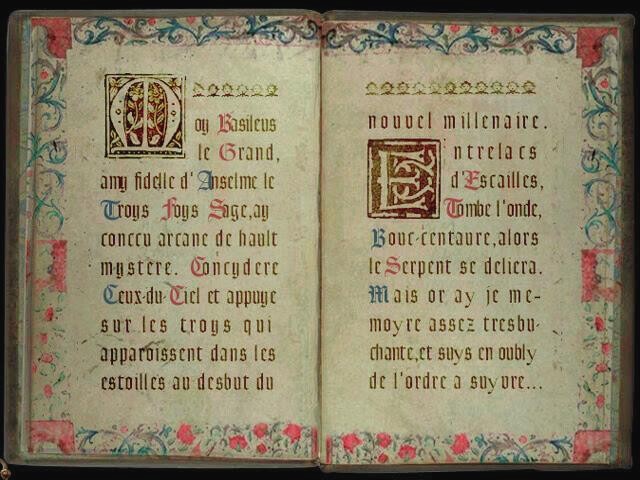 Moy Basileus
le Grand,
amy fidelle d'Anselme le
Troys Foys Sage, ay
conccu arcane de hault
mystere. Concydere
Ceux-du-Ciel et appuye
sur les troys qui
apparoissent dans les
estoilles au desbut du
nouvel millenaire.
Entrelacs
d'Escailles,
Tombe l'onde,
Bouc-centaure, alors
le Serpent se deliera.
Mais or ay je me-
moyre assez tresbu-
chante, et suys en oubly
de l'ordre a suyvre...